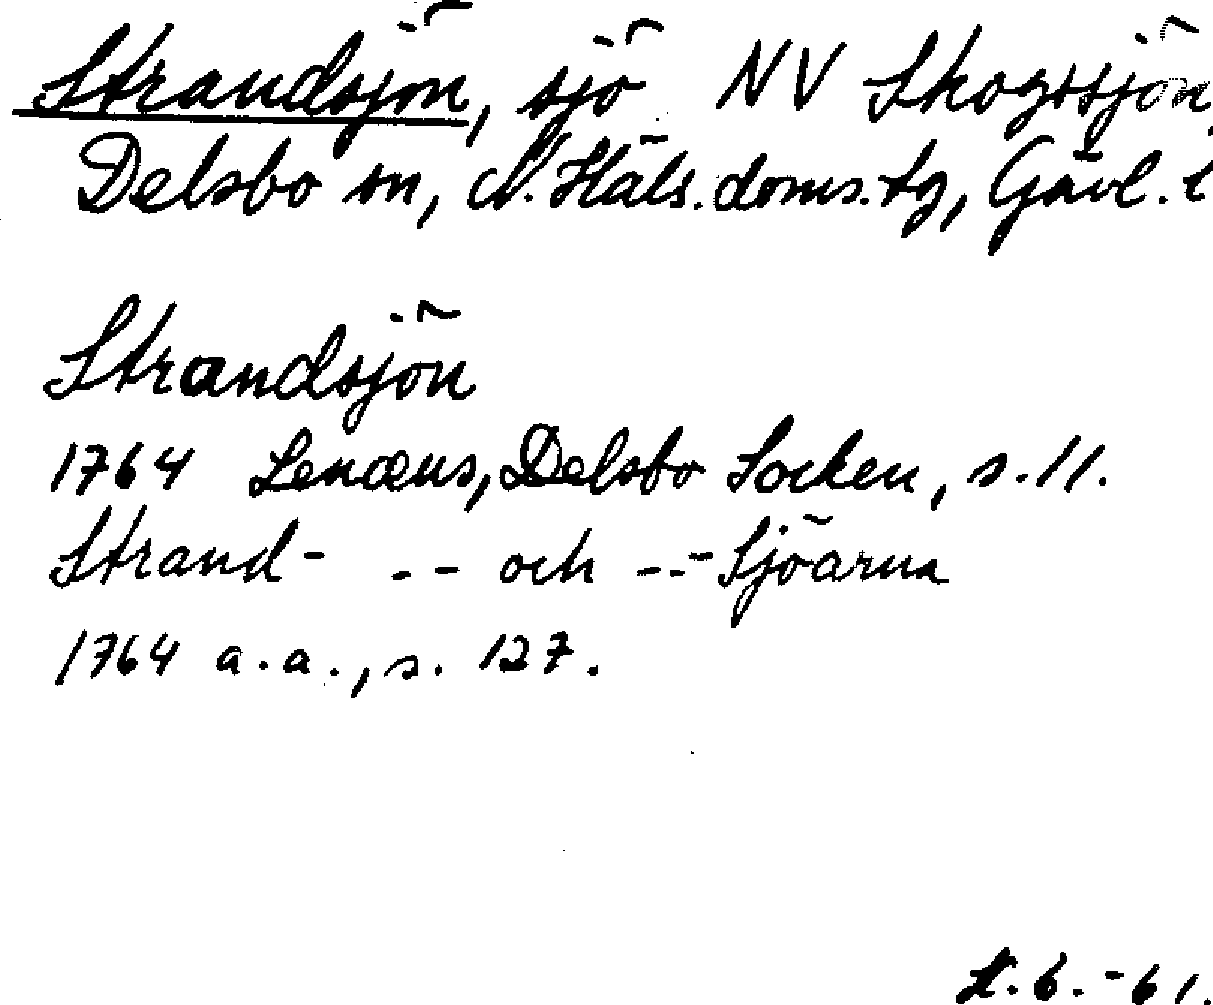 Strandsjön, sjö NV Skogssjön,
Delsbo sn, N. Häls. doms. tg, Gävl. l
Strandsjön
1764 Lenæus, Delsbo Socken, s. 11.
Strand- -- och --- Sjöarna
1764 a.a., s. 127.
6. -61.